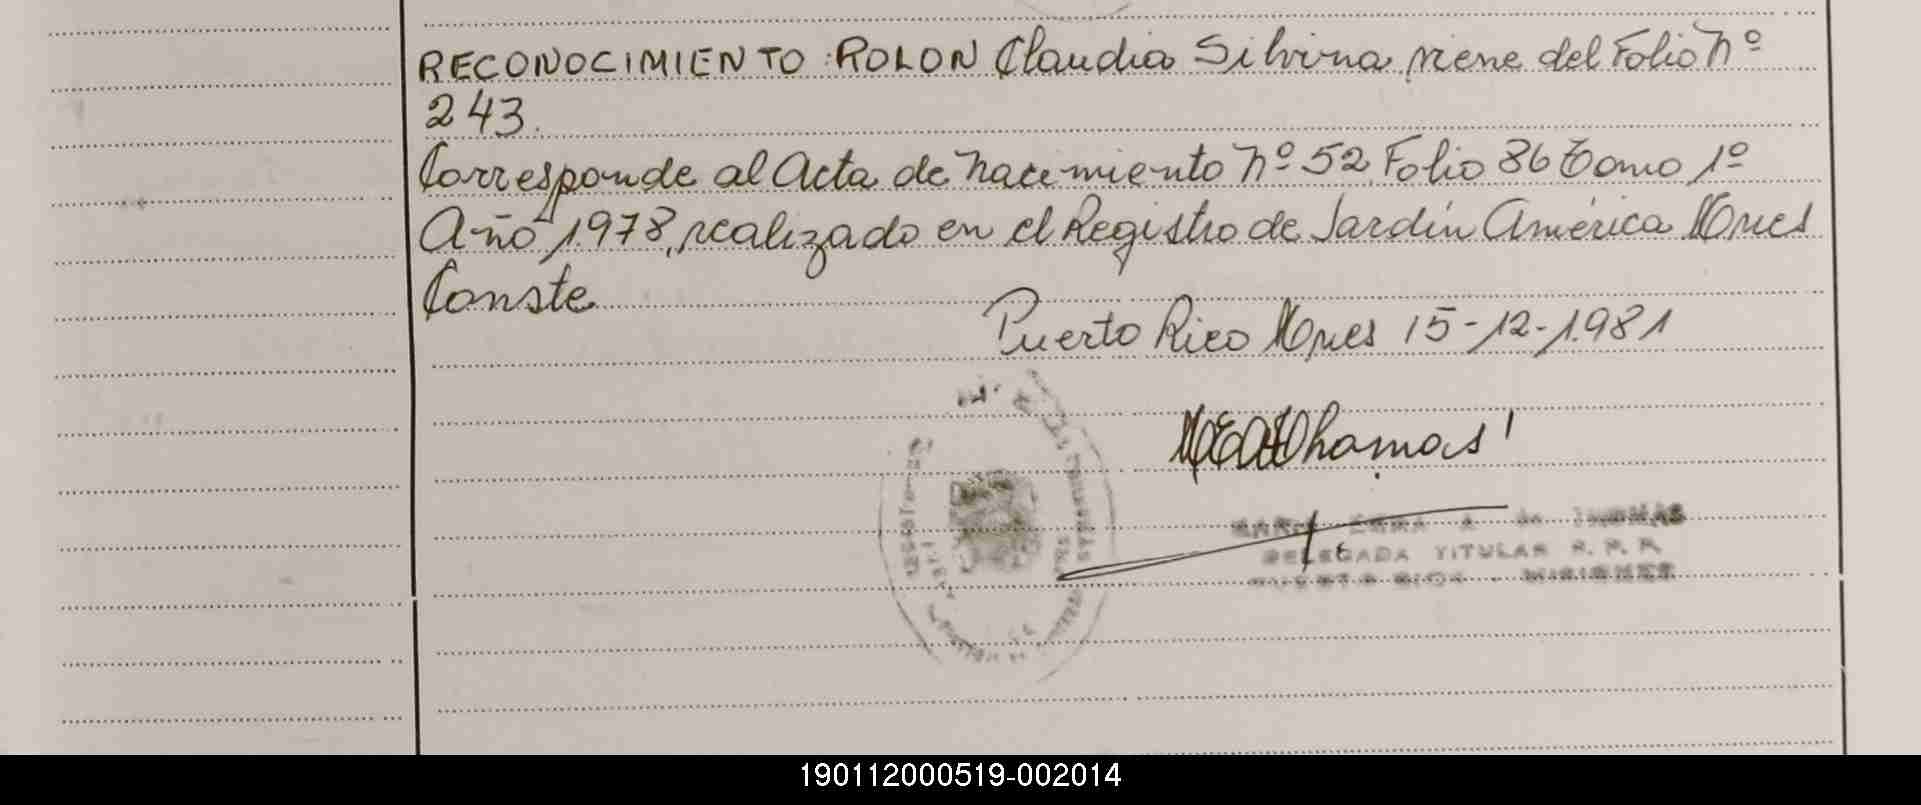 RECONOCIMIENTO: ROLON Claudia Silvina viene del Folio Nº
243.
Corresponde al Acta de Nacimiento Nº 52 Folio 86 Tomo 1º
Año 1978, realizado en el Registro de Jardín América Mnes
Conste
Puerto Rico Mnes 15-12-1981
Thomas
DELEGADA TITULAR R. P. P.
PUERTO RICO - MISIONES
190112000519-002014